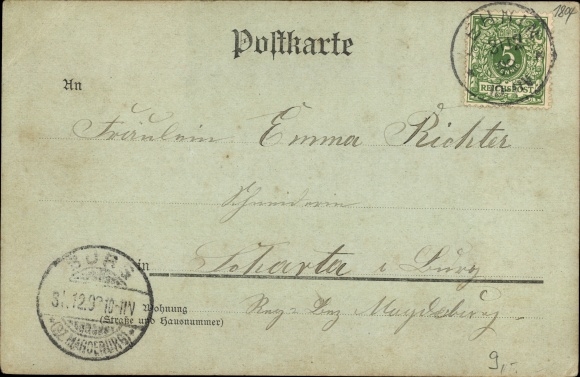 1897
Postkarte
5
REICHSPOST
An
Fräulein Emma Richter
Schneiderin
in Lokarta i Burg
Wohnung
(Straße und Hausnummer)
Reg-Bez Magdeburg
BURG
31.12.9 10-11V
(BZ. MAGDEBURG)
9,-